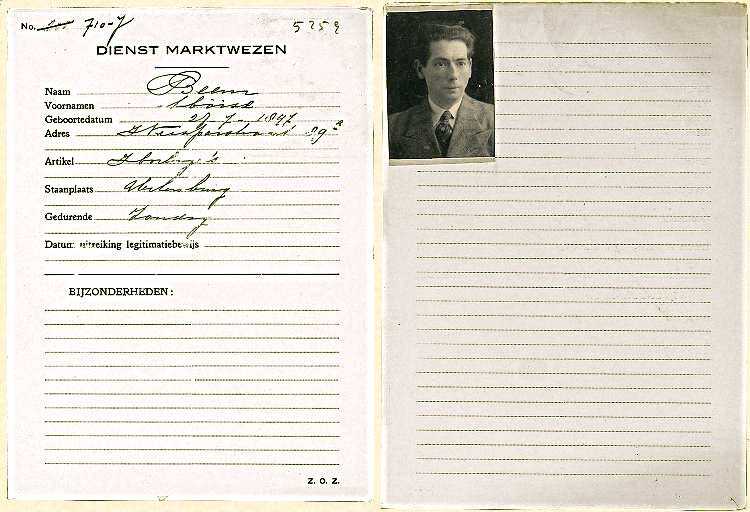 No. 710-7 5259
DIENST MARKTWEZEN
Naam Beem
Voornamen
Geboortedatum 27-7-1897
Adres 89
Artikel Horloge's
Staanplaats Uilenburg
Gedurende Zondag
Datum uitreiking legitimatiebewijs
BIJZONDERHEDEN:
Z. O. Z.